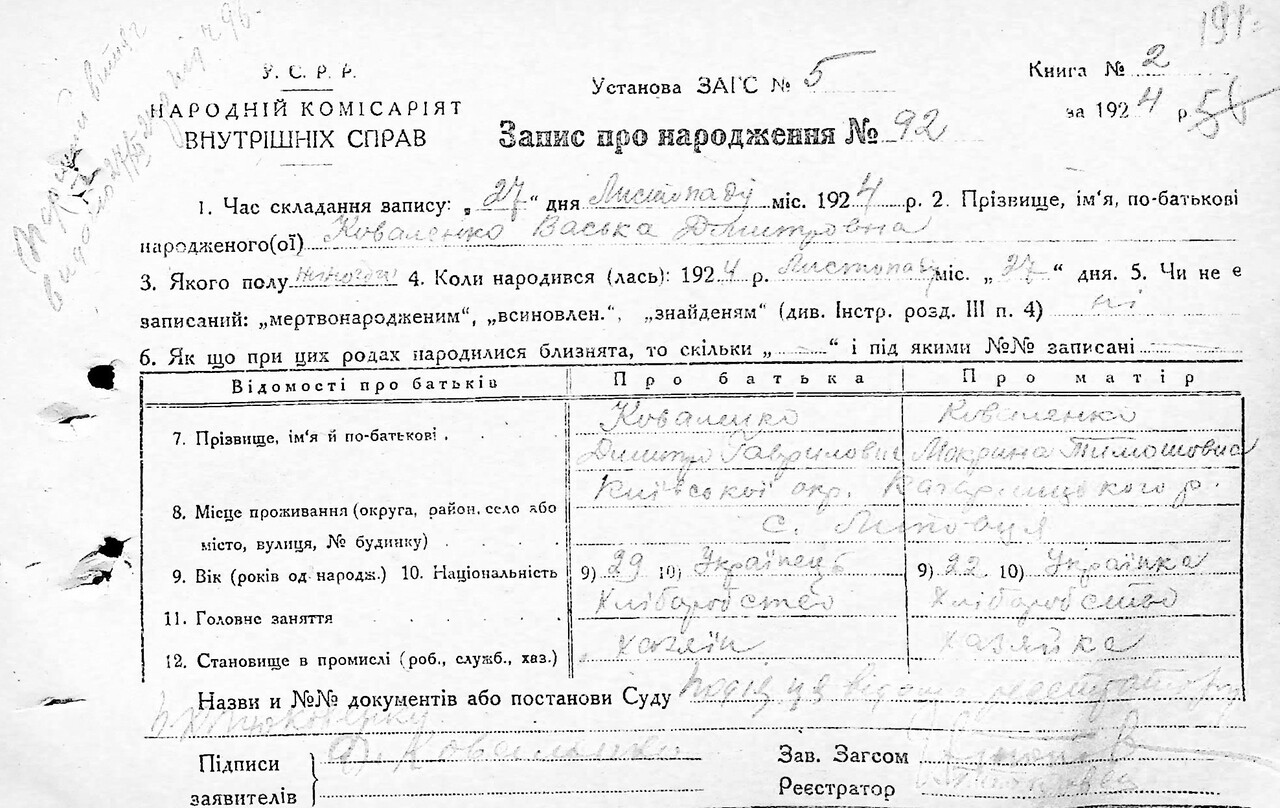 У. С. Р. Р.
НАРОДНІЙ КОМІСАРІЯТ
ВНУТРІШНІХ СПРАВ
Установа ЗАГС № 5
Запис про народження № 92
Книга № 2
за 1924 р.
1. Час складання запису: „27“ дня Листопаду міс. 1924 р. 2. Прізвище, ім'я, по-батькові
народженого(ої) Коваленко Васька Дмитровна
3. Якого полу 4. Коли народився (лась): 1924 р. Листопаду міс. „27“ дня. 5. Чи не є
записаний: „мертвонародженим“, „всиновлен.“, „знайденям“ (див. Інстр. розд. III п. 4) ні
6. Як що при цих родах народилися близнята, то скільки „ “ і під якими №№ записані
Відомості про батьків Про батька Про матір
7. Прізвище, ім'я й по-батькові Коваленко Коваленко
Дмитро Гаврилович Мокрина Тимошовна
8. Місце проживання (округа, район, село або місто, вулиця, № будинку) Київської окр. р.
с.
9. Вік (років од народж.) 10. Національність 9) 29 10) Українець 9) 22 10) Українка
11. Головне заняття Хліборобство Хліборобство
12. Становище в промислі (роб., служб., хаз.) хазяїн хазяйка
Назви и №№ документів або постанови Суду
Підписи
заявителів
Зав. Загсом
Реєстратор